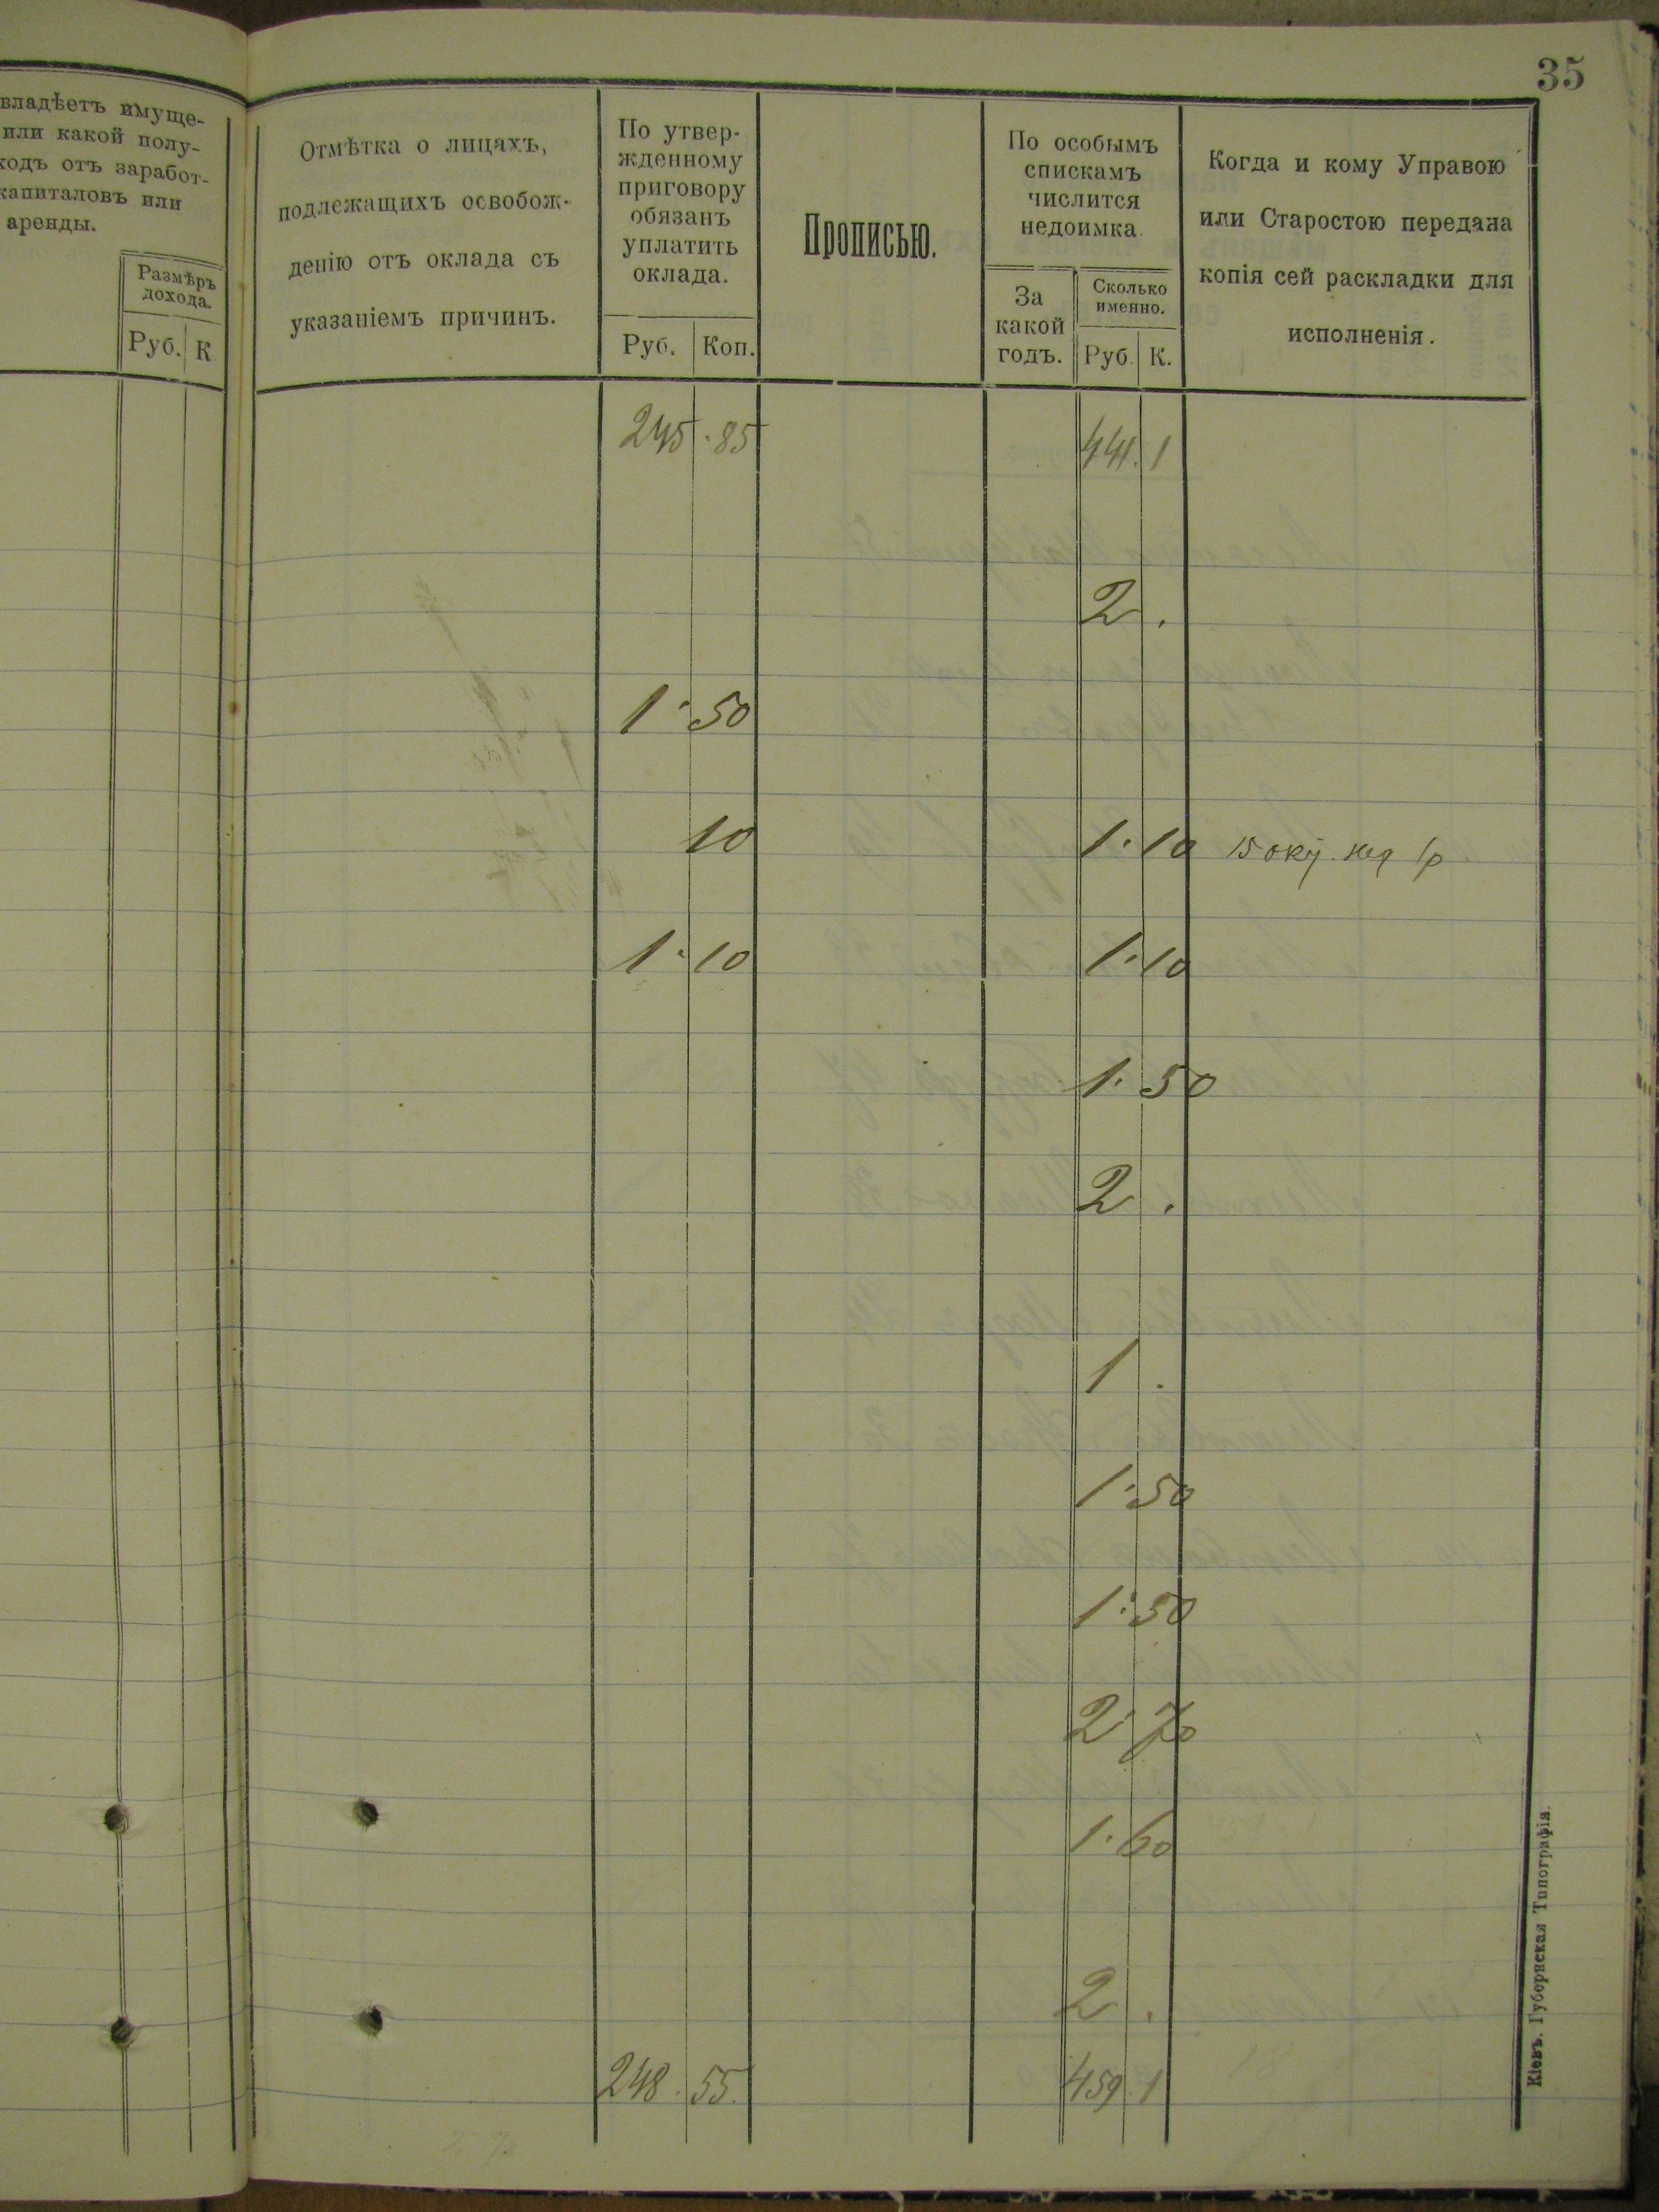 35
владѣетъ имуще-
или какой полу-
ходъ отъ заработ-
капиталовъ или
аренды.
Размѣръ
дохода.
Руб. К
Отмѣтка о лицахъ,
подлежащихъ освобож-
денію отъ оклада съ
указаніемъ причинъ.
По утвер-
жденному
приговору
обязанъ
уплатить
оклада.
Руб. Коп.
Прописью.
По особымъ
спискамъ
числится
недоимка.
За
какой
годъ.
Сколько
именно.
Руб. К.
Когда и кому Управою
или Старостою передана
копія сей раскладки для
исполненія.
245 . 85 441. 1
2 .
1 . 50
10 1. 10 15
1 . 10 1. 10
1. 50
2 .
1 .
1. 50
1. 50
2. 70
1. 60
2 .
248 . 55. 459. 1
Кіевъ. Губернская Типографія.